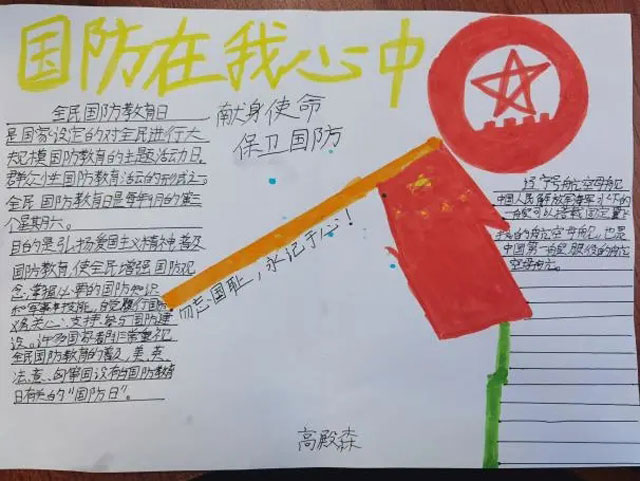 国防在我心中
全民国防教育日
是国家设定的对全民进行大
规模国防教育的主题活动日。
群众性国防教育活动的形式之一。
全民国防教育日是每年9月的第三
个星期六。
目的是弘扬爱国主义精神普及
国防教育,使全民增强国防观
念,掌握必要的国防知识
和军事技能,自觉履行国防
义务关心、支持、参与国防建
设。许多国家都非常重视
全民国防教育的普及,美、英、
法、意、的等国设有与国防教育
日有关的“国防日”。
献身使命
保卫国防
勿忘国耻,永记于心!
辽宁号航空母舰
中国人民解放军海军
一艘可以搭载固定翼
航空母舰,也是
中国第一艘服役的航空
空母舰。
高殿森